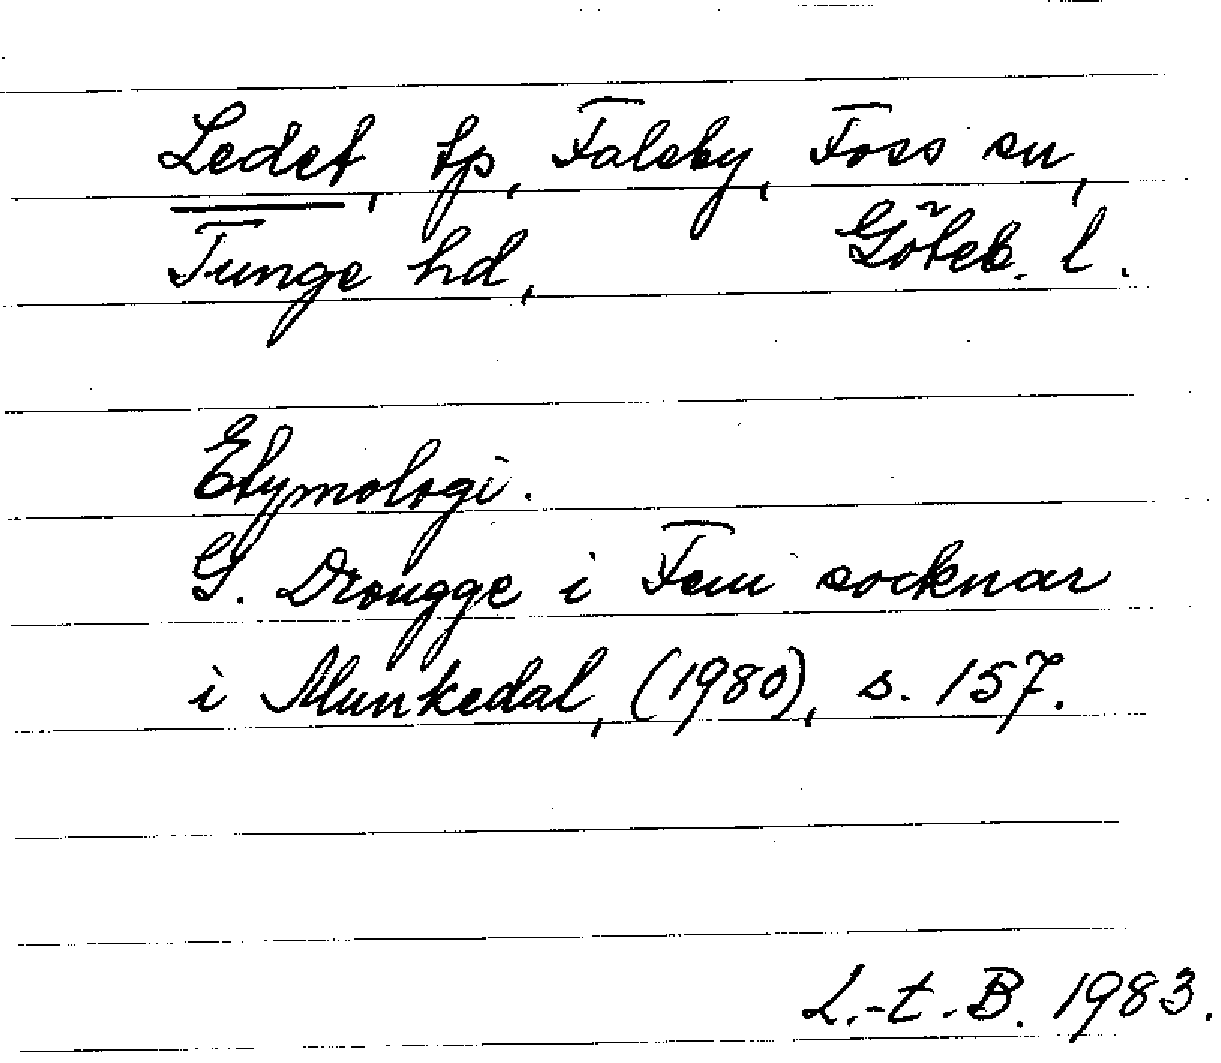 Ledet, tp, Faleby, Foss sn,
Tunge hd, Göteb. l.
Etymologi.
G. Drougge i Fem socknar
i Munkedal, (1980), s. 157.
L.-t.-B. 1983.